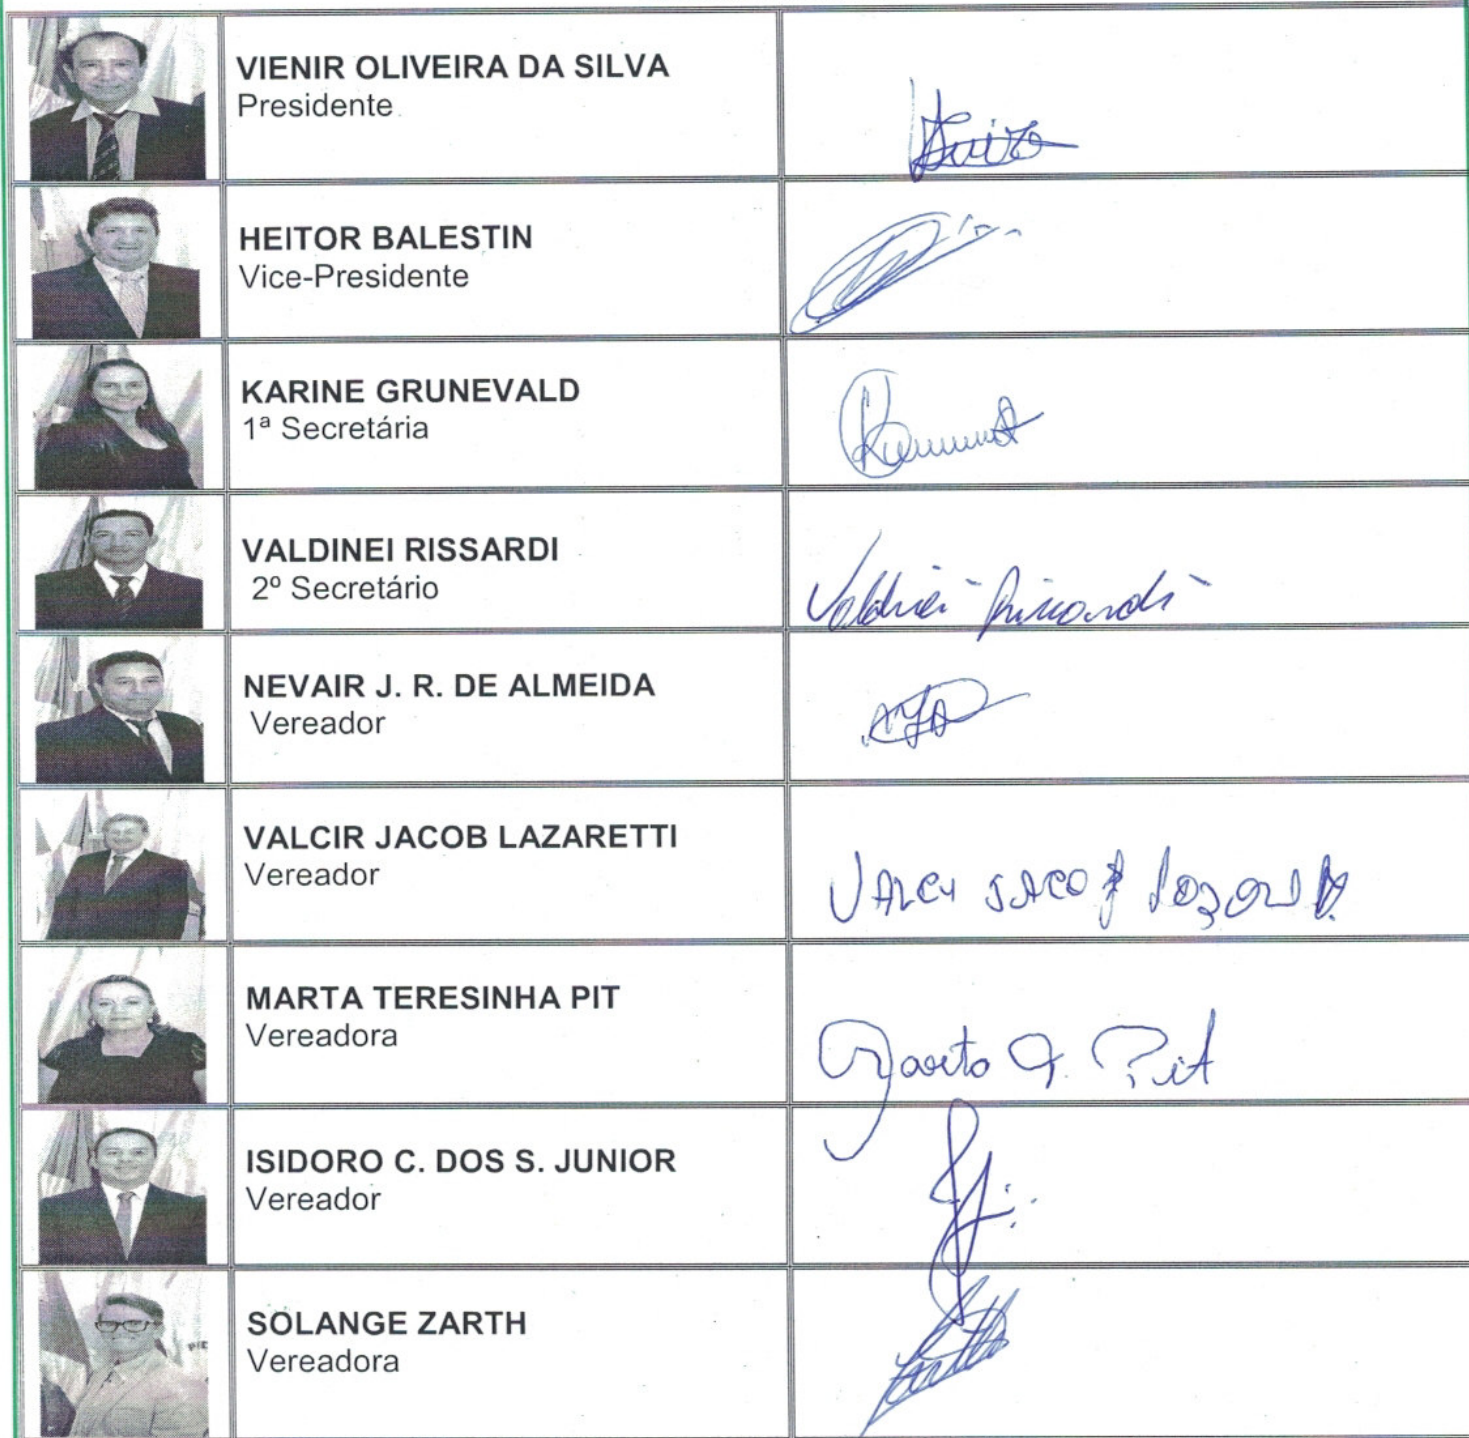 VIENIR OLIVEIRA DA SILVA
Presidente
HEITOR BALESTIN
Vice-Presidente
KARINE GRUNEVALD
1ª Secretária
VALDINEI RISSARDI
2º Secretário
Valdinei Rissardi
NEVAIR J. R. DE ALMEIDA
Vereador
VALCIR JACOB LAZARETTI
Vereador
MARTA TERESINHA PIT
Vereadora
Marta T. Pit
ISIDORO C. DOS S. JUNIOR
Vereador
SOLANGE ZARTH
Vereadora